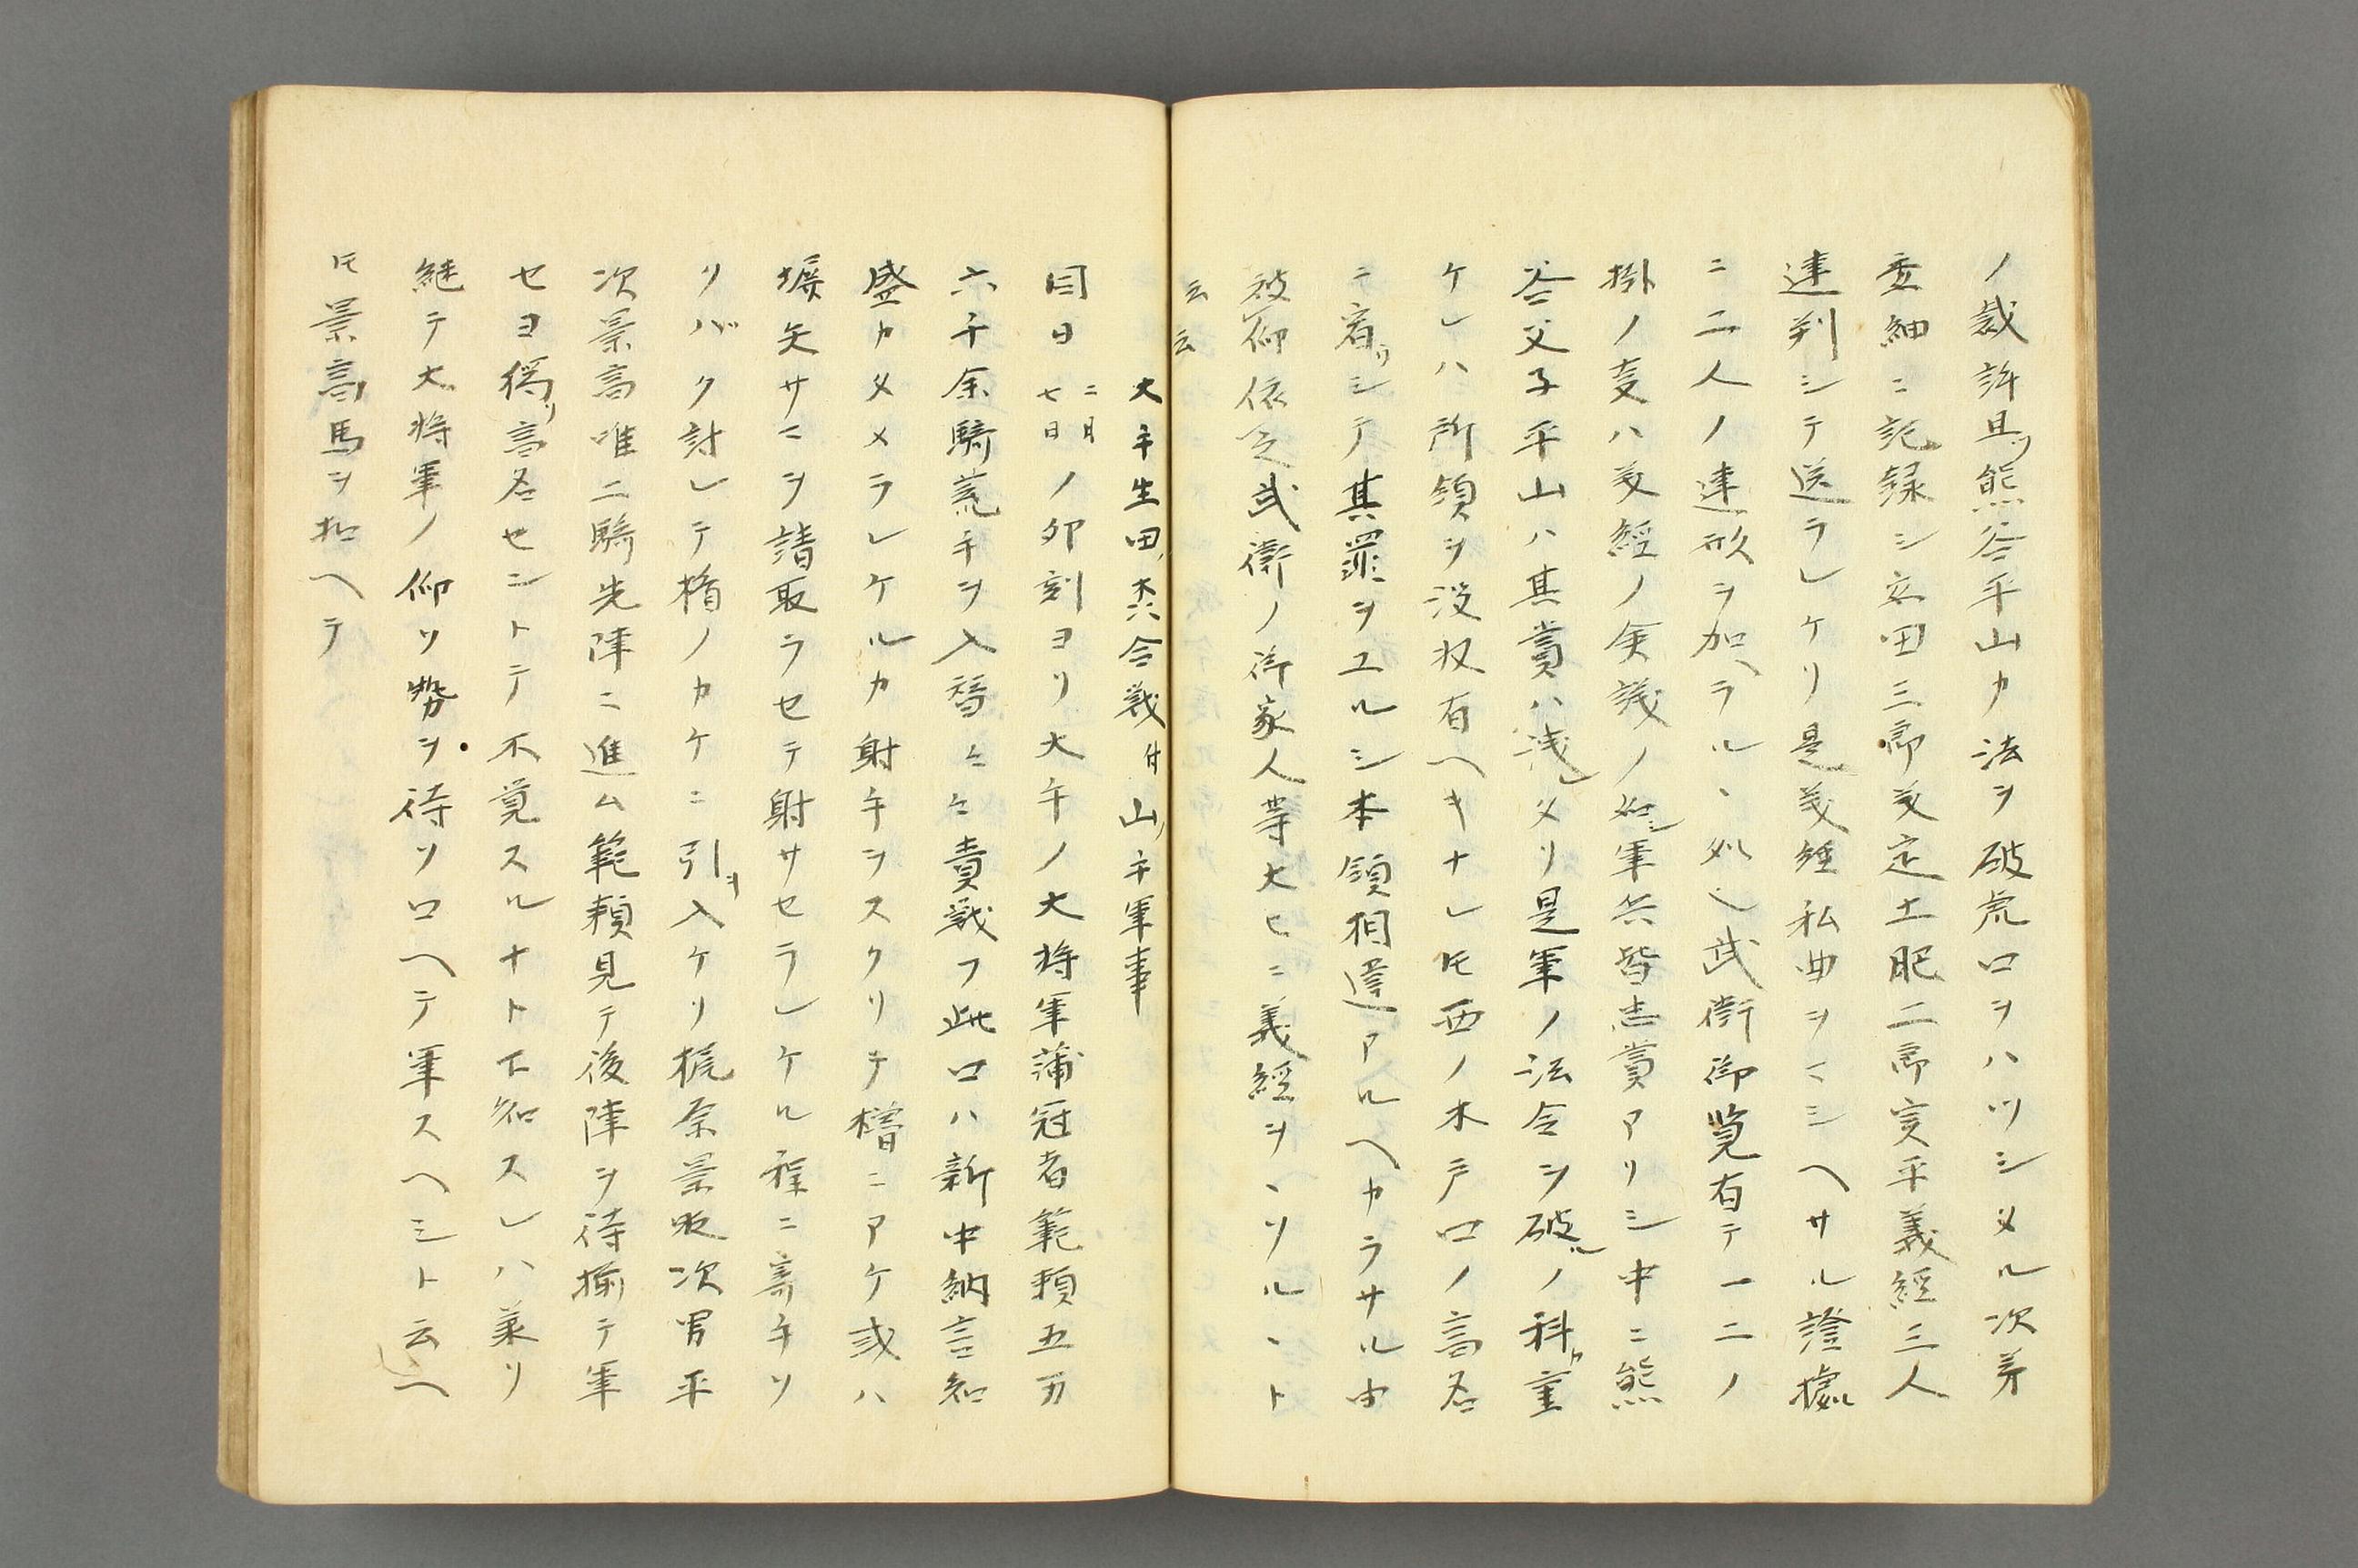 ノ裁許且ツ熊谷平山カ法ヲ破虎口ヲハツシメル次第
委細ニ記録シ安田三郎義定土肥二郎実平義經三人
連判シテ送ラレケリ是義經私曲ヲコシヘサル證據
ニ二人ノ連形ヲ加ヘラル、処也武衛御覧有テ一二ノ
掛ノ支ハ義經ノ僉議ノ如シ軍兵皆忠賞アリシ中ニ熊
谷父子平山ハ其賞ハ浅シメリ是軍ノ法令ヲ破ルノ科カ重
ケレハ所領ヲ没収有ヘキナレ𪜈西ノ木戸口ノ高名
ニ宥リシテ其罪ヲユルシ本領相違アルヘカラサル由
被仰依之武衛ノ御家人等大ヒニ義經ヲ、ソル、ト
云云
大手生田ノ森合戦付山ノ手軍事
同日二月七日ノ卯刻ヨリ大手ノ大将軍蒲冠者範頼五万
六千余騎荒手ヲ入替々々責戦フ此口ハ新中納言知
盛カタメラレケルカ射手ヲスクリテ櫓ニアケ或ハ
塀矢サマヲ請取ラセテ射サセラレケル程ニ寄手ソ
リバク討レテ楯ノカケニ引ヲ入ケリ梶原景時次男平
次景高唯二騎先陣ニ進ム範頼見テ後陣ヲ待揃テ軍
セヨ偽リ高名セントテ不覚スルナト下知スレハ兼リ
継テ大将軍ノ仰ソ勢ヲ待ソロヘテ軍スヘシト云ヘ
𪜈景高馬ヲ扣ヘテ